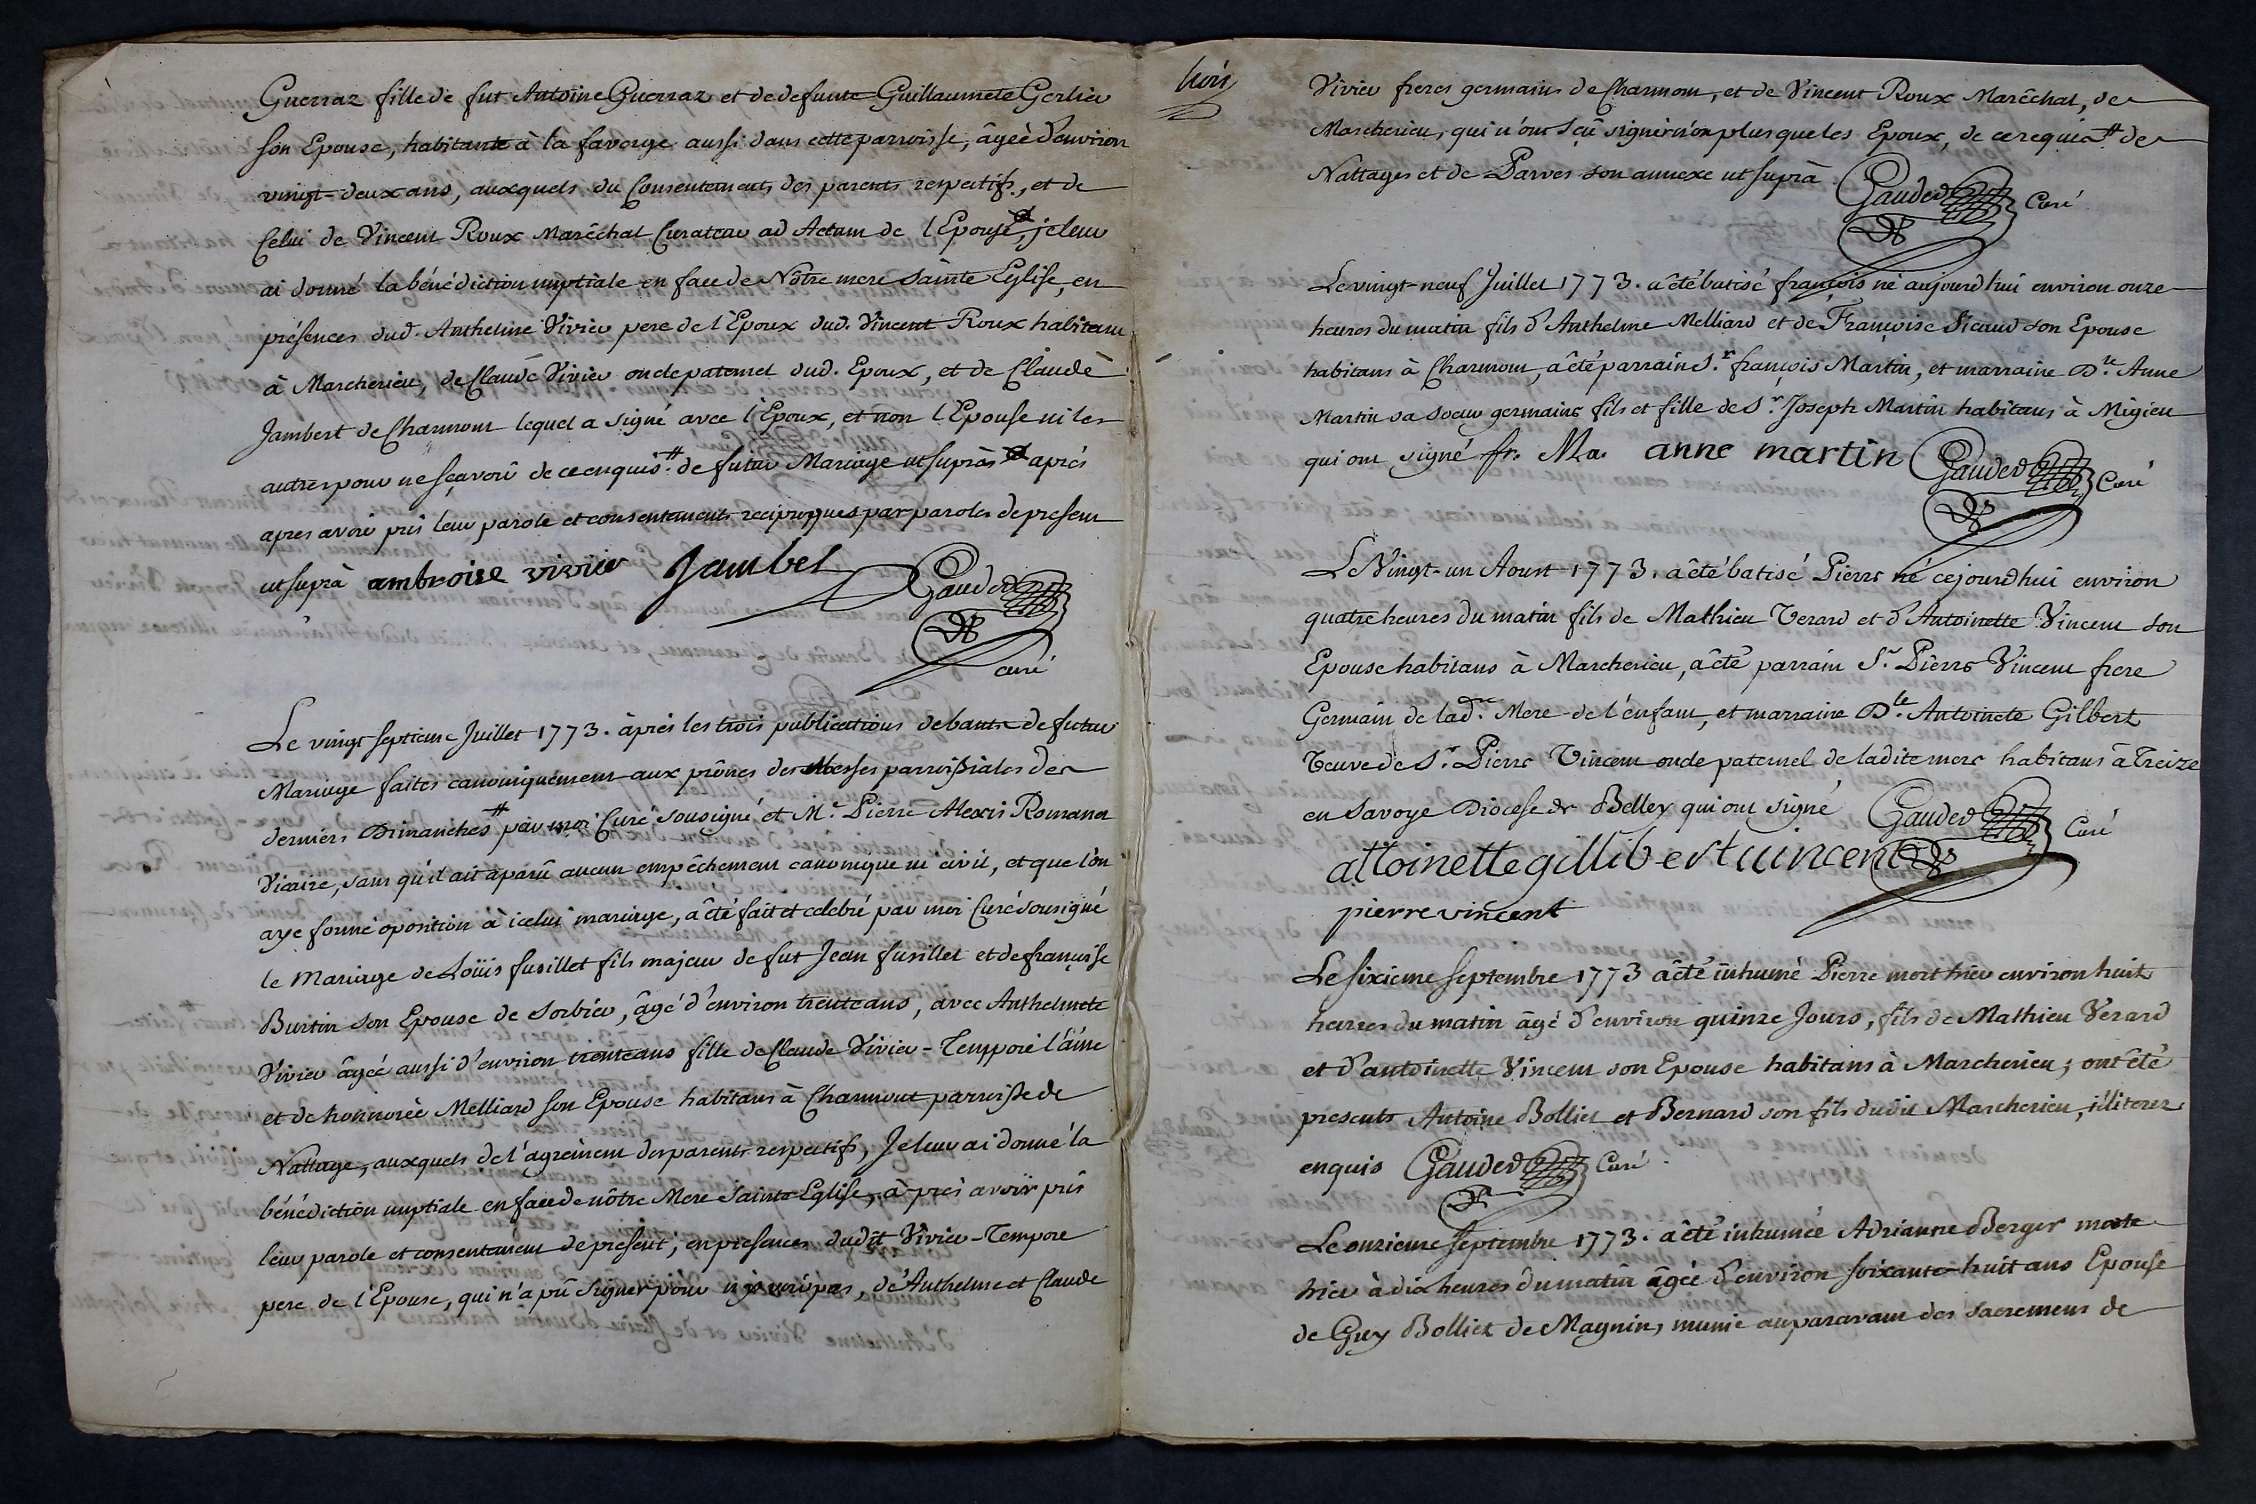 Guerraz fille de fut Antoine Guerraz et de defunte Guillaumete Gerlier
son Epouse, habitante à la favorge aussi dans cette parroisse, âgeè d'environ
vingt-deux ans, auxquels du Consentements des parents respectifs, et de
Celui de Vincent Roux Marêchal Curateur ad Actum de l'Epouse, je leur
ai donné la bénédiction nuptiale en face de Nôtre mere Sainte Eglise, en
présences dud. Anthelme Vivier pere de l'Epoux dud. Vincent Roux habitans
à Marcherieu, de Claude Vivier oncle paternel dud. Epoux, et de Claude
Jambert de Charmont lequel a signé avec l'Epoux, et non l'Epouse ni les
autres pour ne sçavoir de ce enquis. # de futur Mariage ut suprà après
apres avoir pris leur parole et consentements reciproques par paroles de present
ut suprà ambroise vivier Jambet Gauded
curé
Le vingt septieme Juillet 1773. àprès les trois publications de bants de futur
Mariage faites canoniquement aux prônes des Messes parroissiales de
derniers Dimanches # par moi Curé Sousigné et Mr. Pierre Alexis Romana
Vicaire, sans qu'il ait aparû aucun empêchement canonique ni civil, et que l'on
aye formé oposition à icelui mariage, a êté fait et celebré par moi Curé sousigné
le Mariage de Loüis fusillet fils majeur de fut Jean fusillet et de françoise
Burtin son Epouse de Sorbier, âgé d'environ trente ans, avec Anthelmete
Vivier âgée aussi d'envrion trente ans fille de Claude Vivier-Tempore l'aîné
et de honnorée Melliard son Epouse habitans à Charmont parroisse de
Nattage, auxquels de l'agrément des parents respectifs, Je leur ai donné la
bénédiction nuptiale en face de nôtre Mere Sainte Eglise, àprès avoir pris
leur parole et consentement de present, en presences dudit Vivier-Tempore
pere de l'Epouse, qui n'a pû signer pour, de Anthelme et Claude
trois
Vivier freres germains de Charmont, et de Vincent Roux Marêchal, de
Marcherieu, qui n'ont sçû signer non plus que les Epoux, de ce requis # de
Nattages et de Parves son annexe ut suprà Gauded Curé
Le vingt-neuf Juillet 1773. a êté batisé françois né aujourd'hui environ onze
heures du matin fils d'Anthelme Melliard et de Françoise Sicaud son Epouse
habitans à Charmont, a êté parrain Sr. françois Martin, et marraine Dlle. Anne
Martin sa soeur germaine fils et fille de Sr. Joseph Martin habitans à Migieu
qui ont signé fr. Ma. anne martin Gauded Curé
Le Vingt-un Aoust 1773. a êté batisé Pierre né cejourd'hui environ
quatre heures du matin fils de Mathieu Verard et d'Antoinette Vincent son
Epouse habitans à Marcherieu, a êté parrain Sr. Pierre Vincent frere
Germain de lad. Mere de l'enfant, et marraine Dlle. Antoinete Gilbert
Veuve de Sr. Pierre Vincent oncle paternel de ladite mere habitans à Treize
en Savoye Diocese de Belley qui ont signé Gauded Curé
attoinette gillibert uincent
pierre vincent
Le sixieme Septembre 1773 a êté inhumé Pierre mort hier environ huit
heures du matin âgé d'environ quinze Jours, fils de Mathieu Verard
et d'antoinette Vincent son Epouse habitans à Marcherieu; ont êté
presents Antoine Bolliet et Bernard son fils dudit Marcherieu, illiterez
enquis Gauded Curé
Le onzieme Septembre 1773. a êté inhumée Adrianne Berger morte
hier à dix heures du matin âgée d'environ soixante-huit ans Epouse
de Guy Bolliet de Magnin, munie auparavant des sacremens de